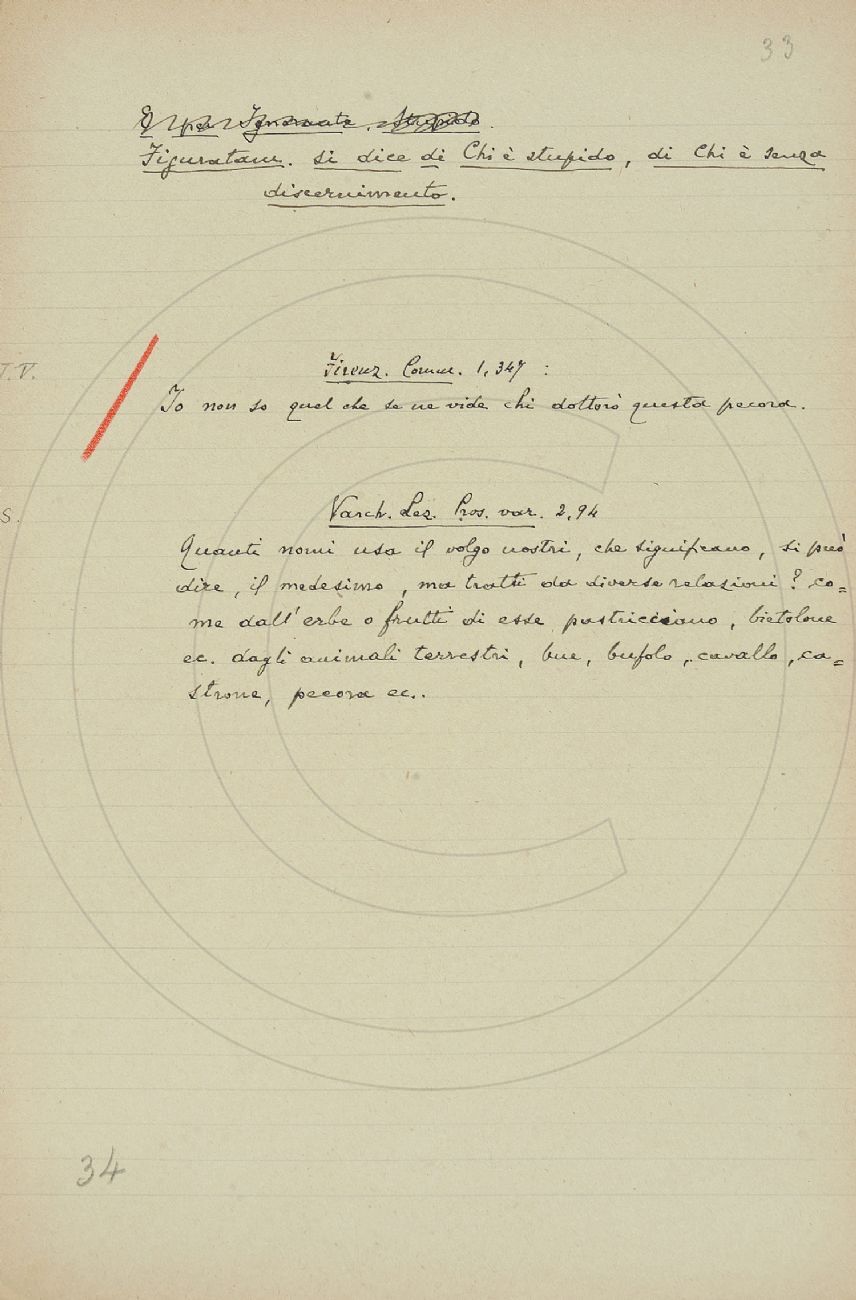 33
E per Ignorante. Stupido.
Figuratam. si dice di Chi è stupido, di Chi è senza
discernimento.
T.V.
Firenz. Comm. 1, 347 :
Io non so quel che se ne vide chi dottorò questa pecora.
S.
Varch. Lez. Pros. var. 2, 94
Quanti nomi usa il volgo nostri, che significano, si può
dire, il medesimo, ma tratti da diverse relazioni? co=
me dall'erbe o frutti di esse pastricciano, bietolone
ec. dagli animali terrestri, bue, bufolo, cavallo, ca=
strone, pecora ec..
34